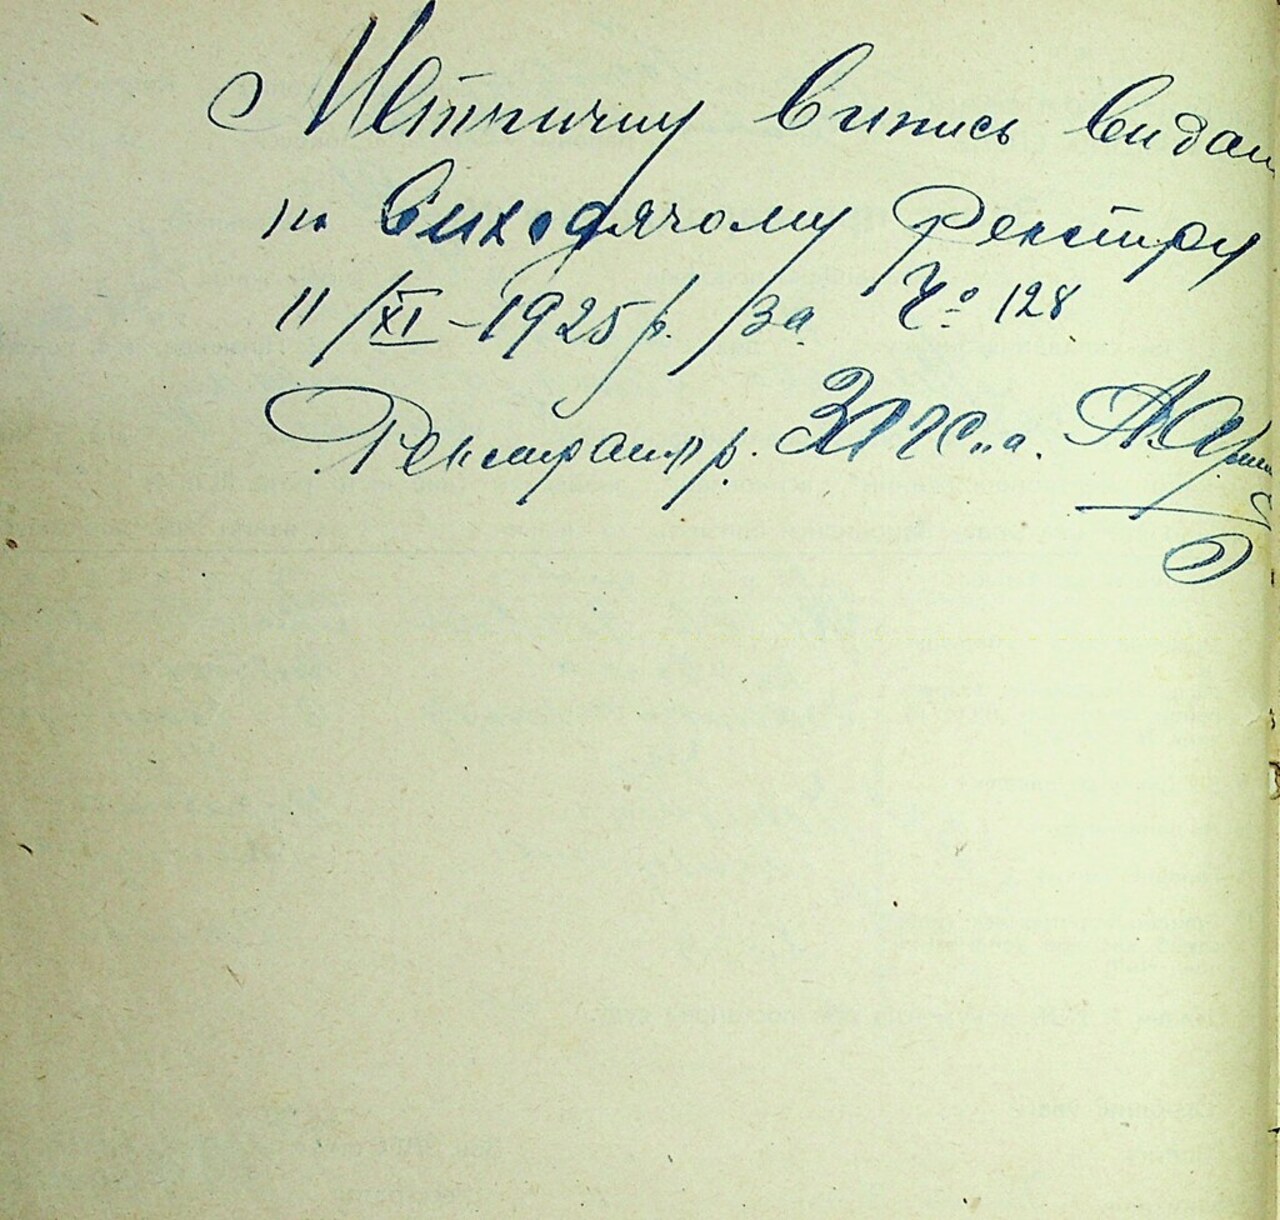 Метричну випись видан
по Виходячому Реєстру
11/XI – 1925 р. за Ч° 128
Реєстратор ЗАГС"а. А.